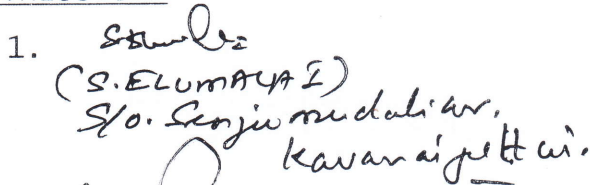 1.
(S. ELUMALAI)
S/o. Senjiu mudaliar,
Kavanaipettai.